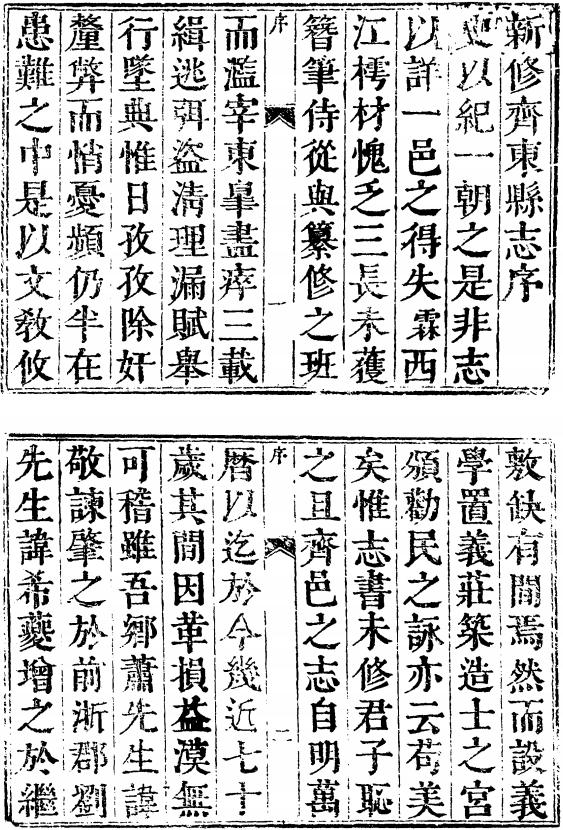 新修齊東縣志序
史以紀一朝之是非志
以詳一邑之得失霖西
江樗材愧乏三長未獲
簪筆侍從與纂修之班
序 一
而濫宰東皋盡瘁三載
緝逃弭盜清理漏賦舉
行墜典惟日孜孜除奸
釐弊而悄憂頻仍半在
患難之中是以文敎攸
敷缺有間焉然而設義
學置義莊築造士之宮
頒勸民之詠亦云苟美
矣惟志書未修君子恥
之且齊邑之志自明萬
序 二
曆以迄於今幾近七十
歲其間因革損益漠無
可稽雖吾鄉蕭先生諱
敬諫肇之於前浙郡劉
先生諱希夔增之於繼